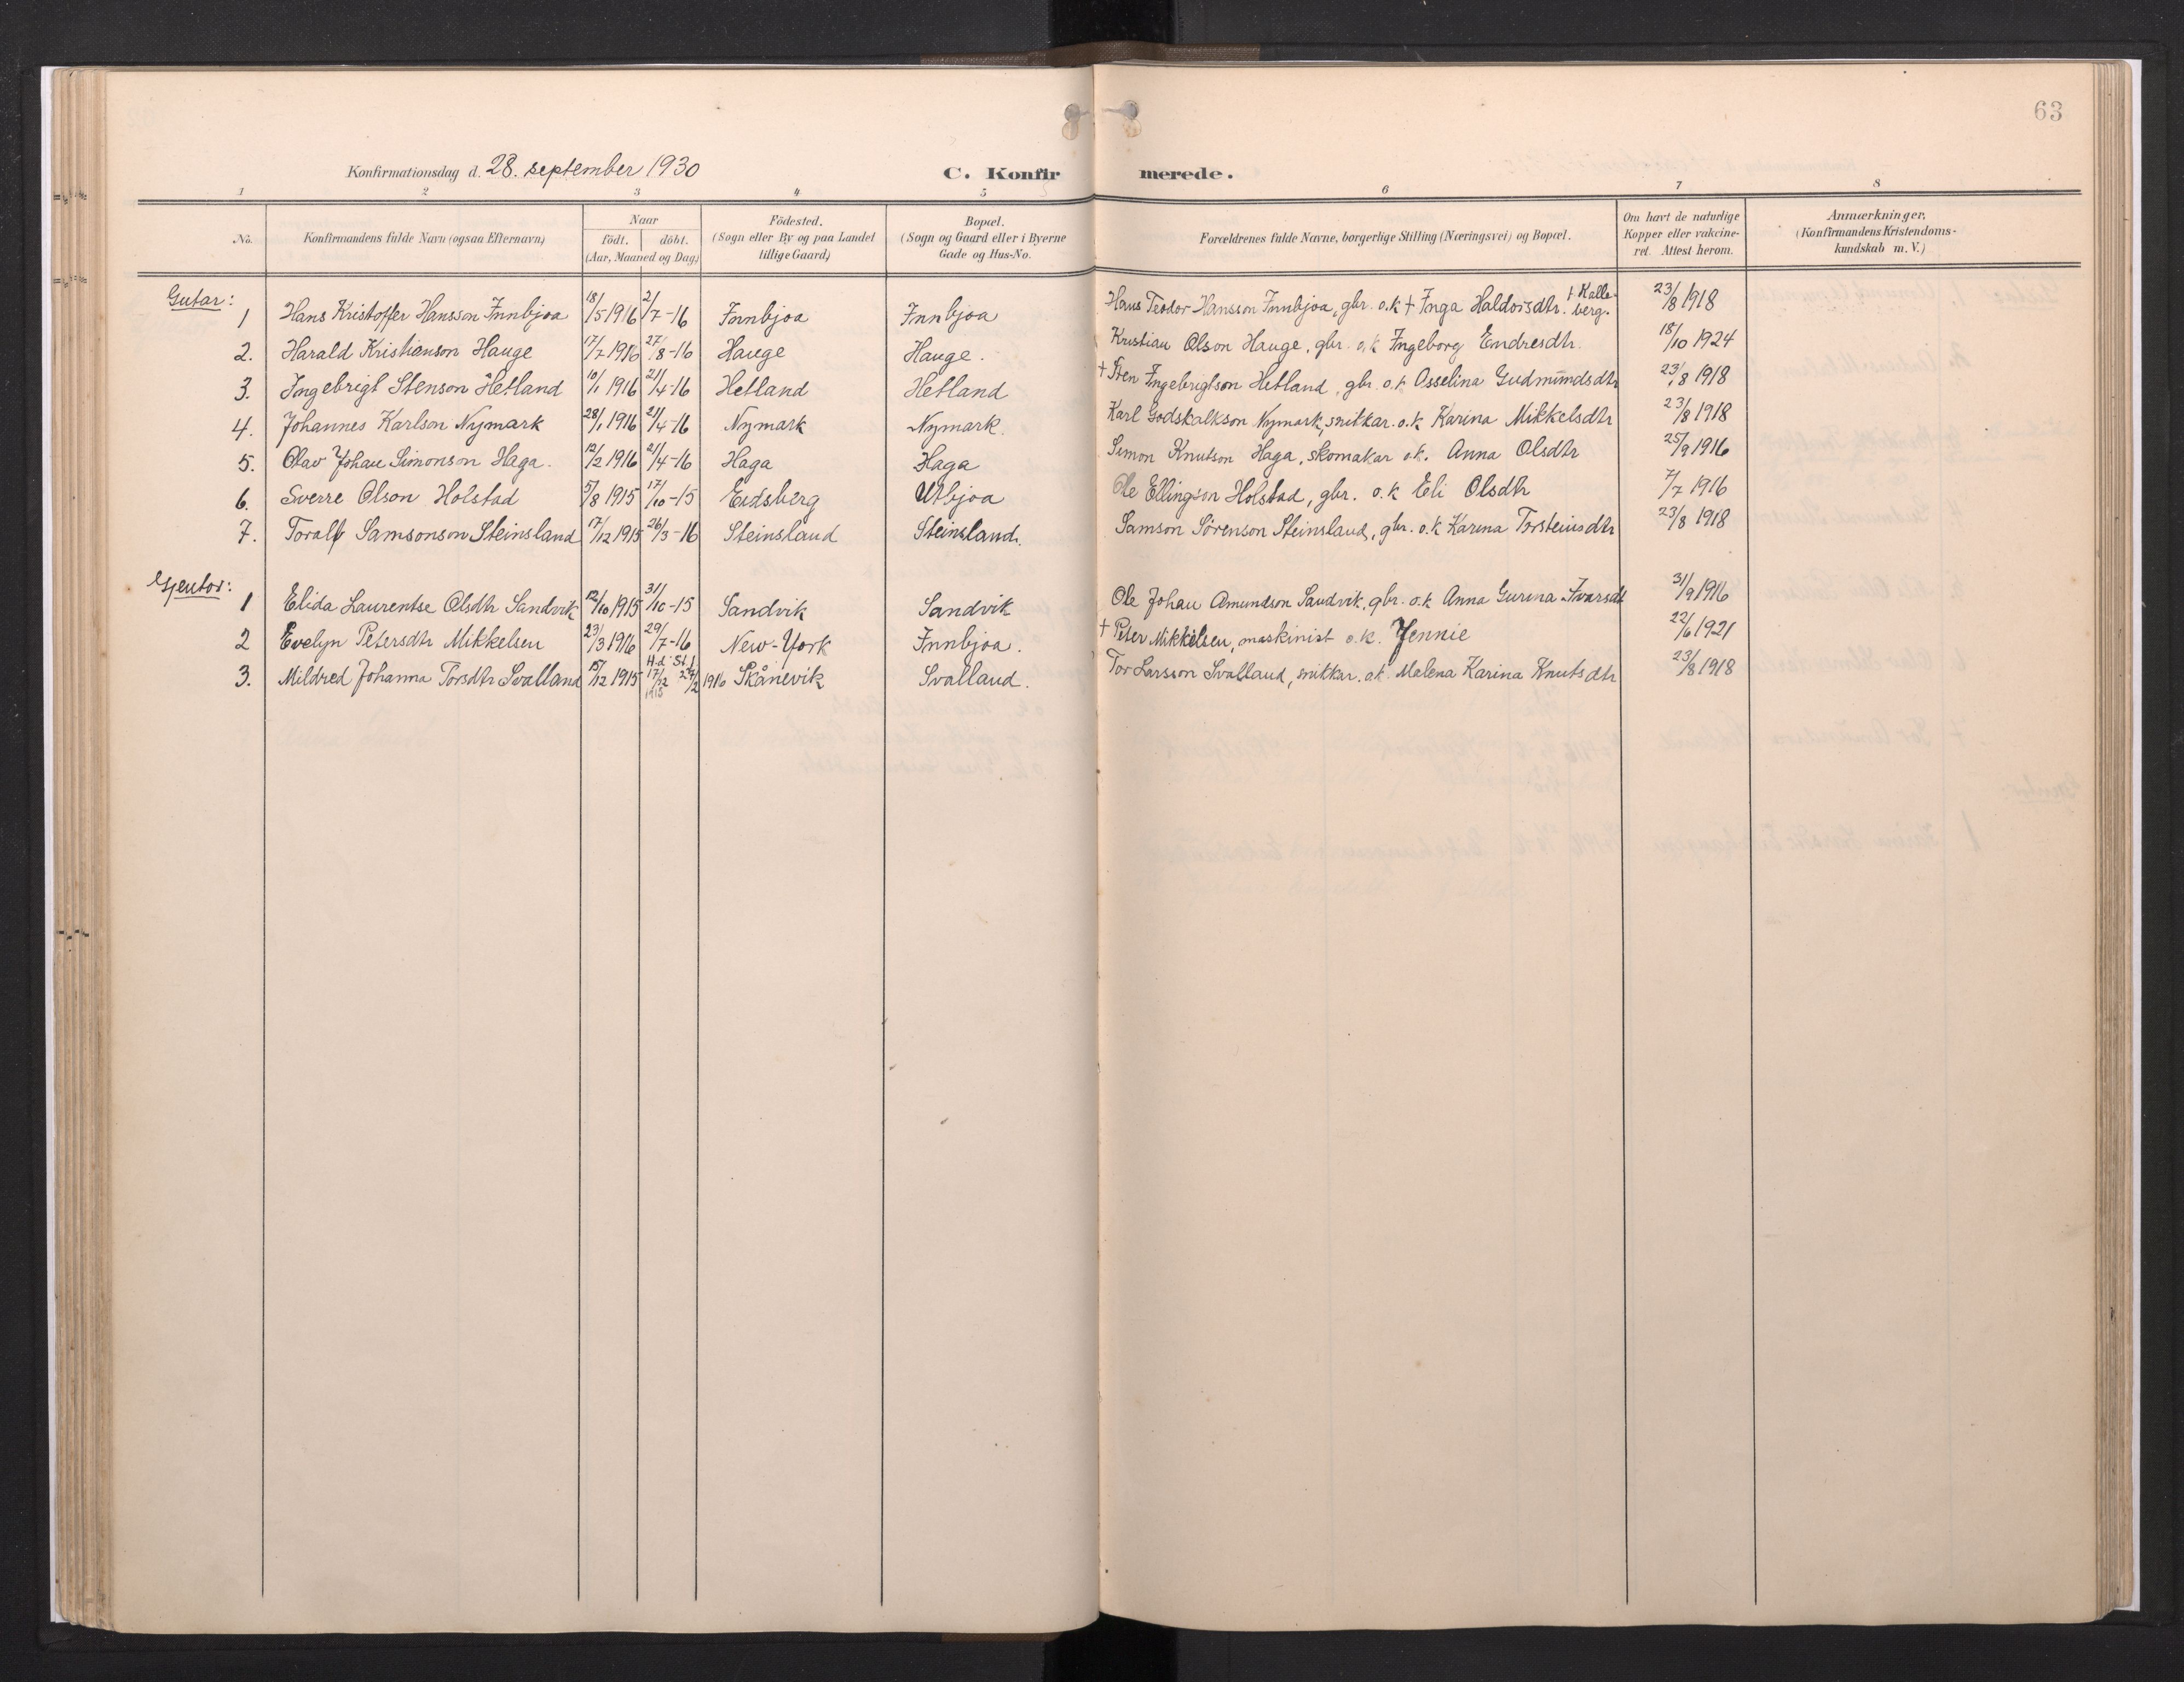 63
Konfirmationsdag d. 28. september 1930 C. Konfirmerede.
1 2 3 4 5 6 7 8
No. Konfirmandens fulde Navn (ogsaa Efternavn) Naar födt. döbt. (Aar, Maaned og Dag) Födested. (Sogn eller By og paa Landet tillige Gaard) Bopæl. (Sogn og Gaard eller i Byerne Gade og Hus-No. Forældrenes fulde Navne, borgerlige Stilling (Næringsvei) og Bopæl. Om havt de naturlige Kopper eller vakcineret. Attest herom. Anmærkninger. (Konfirmandens Kristendomskundskab m. V.)
Gutar:
1 Hans Kristoffer Hansson Innbjoa 18/5 1916 2/7-16 Innbjoa Innbjoa Hans Teodor Hansson Innbjoa, gbr. o.k + Inga Haldorsdtr. f. Kalleberg. 23/8 1918
2. Harald Kristianson Hauge 17/7 1916 27/8-16 Hauge Hauge. Kristian Olson Hauge, gbr. o.k Ingeborg Endresdtr. 18/10 1924
3. Ingebrigt Stenson Hetland 10/1 1916 21/4-16 Hetland Hetland + Sten Ingebrigtson Hetland, gbr. o.k Osselina Gudmundsdtr 23/8 1918
4. Johannes Karlson Nymark 28/1 1916 21/4-16 Nymark Nymark. Karl Godskalkson Nymark, snikkar. o.k Karina Mikkelsdtr 23/8 1918
5. Olav Johan Simonson Haga. 12/2 1916 21/4-16 Haga Haga Simon Knutson Haga, skomakar o.k. Anna Olsdtr 25/9 1916
6. Sverre Olson Holstad 5/8 1915 17/10-15 Eidsberg Utbjoa Ole Ellingson Holstad, gbr. o.k Eli Olsdtr 7/7 1916
7. Toralf Samsonson Steinsland 17/12 1915 26/3-16 Steinsland Steinsland. Samson Sørenson Steinsland, gbr. o.k Karina Torsteinsdtr 23/8 1918
Gjentor:
1 Elida Laurentse Olsdtr Sandvik 12/10 1915 31/10-15 Sandvik Sandvik Ole Johan Amundson Sandvik, gbr. o.k Anna Gurina Ivarsdtr 31/9 1916
2 Evelyn Petersdtr Mikkelsen 23/3 1916 29/7-16 New-York Innbjoa. + Peter Mikkelsen, maskinist o.k. Jennie 22/6 1921
3. Mildred Johanna Torsdtr Svalland 15/12 1915 H.d. 17/12 1915 St.f. 27/2 1916 Skånevik Svalland. Tor Larsson Svalland, snikkar. o.k. Malena Karina Knutsdtr 23/8 1918